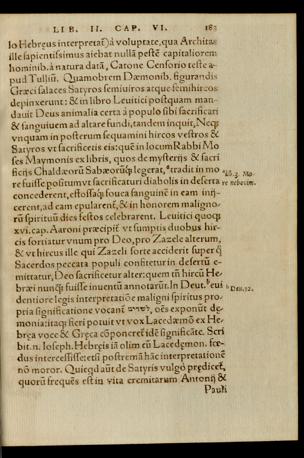 LIB. II. CAP. VI. 183
lo Hebręus interpretat)à voluptate, qua Architas
ille sapientissimus aiebat nullā pestē capitaliorem
hominib. à natura datā, Catone Censorio teste a-
pud Tulliū. Quamobrem Dæmonib. figurandis
Græci salaces Satyros semiuiros atque semihircos
depinxerunt: & in libro Leuitici postquam man-
dauit Deus animalia certa à populo sibi sacrificari
& sanguinem ad altare fundi, tandem inquit, Neq;
vnquam in posterum sequamini hircos vestros &
Satyros vt sacrificetis eis: quē in locum Rabbi Mo
ses Maymonis ex libris, quos de mysterijs & sacri
ficijs Chaldæorū Sabæorūq; legerat, tradit in mo
re fuisse positum vt sacrificaturi diabolis in deserta
concederent, & fossaq; fouea sanguinē in eam inij-
cerent, ad eam epularent, & in honorem maligno-
rū spirituū dies festos celebrarent. Leuitici quoq;
xvi. cap. Aaroni præcipit vt sumptis duobus hir-
cis sortiatur vnum pro Deo, pro Zazele alterum,
& vt hircus ille qui Zazeli forte acciderit super q̄
Sacerdos peccata populi confitetur in desertū e-
mittatur, Deo sacrificetur alter: quem tñ hircū He-
bræi nunq̄ fuisse inuentū annotarūt. In Deut. eui
dentiore legis interpretatiōe maligni spiritus pro-
pria significatione vocant לשדים, oēs exponūt dę-
monia: itaq; fieri potuit vt vox Lacedæmō ex He-
bręa voce & Gręca cōponeret idē significāte. Scri
bit. n. Ioseph. Hebręis iā olim cū Lacedęmon. fœ-
dus intercessisse: etsi postremā hāc interpretationē
nō moror. Quicqd aūt de Satyris vulgò prędicet,
quorū frequēs est in vita eremitarum Antonij &
Pauli
lib. 3. Mo-
re neboem.
Deu. 32.